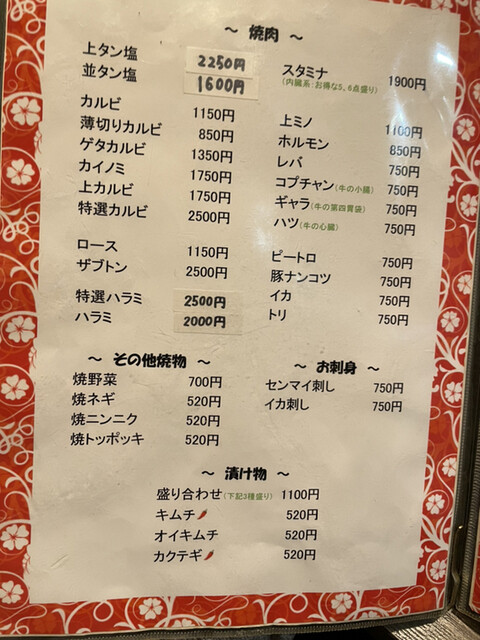 ～ 焼肉 ～
上タン塩 2250円
並タン塩 1600円
カルビ 1150円
薄切りカルビ 850円
ゲタカルビ 1350円
カイノミ 1750円
上カルビ 1750円
特選カルビ 2500円
ロース 1150円
ザブトン 2500円
特選ハラミ 2500円
ハラミ 2000円
スタミナ 1900円
(内臓系：お得な5、6点盛り)
上ミノ 1100円
ホルモン 850円
レバ 750円
コプチャン(牛の小腸) 750円
ギャラ(牛の第四胃袋) 750円
ハツ(牛の心臓) 750円
ピートロ 750円
豚ナンコツ 750円
イカ 750円
トリ 750円
～ その他焼物 ～
焼野菜 700円
焼ネギ 520円
焼ニンニク 520円
焼トッポッキ 520円
～ お刺身 ～
センマイ刺し 750円
イカ刺し 750円
～ 漬け物 ～
盛り合わせ(下記3種盛り) 1100円
キムチ 520円
オイキムチ 520円
カクテギ 520円